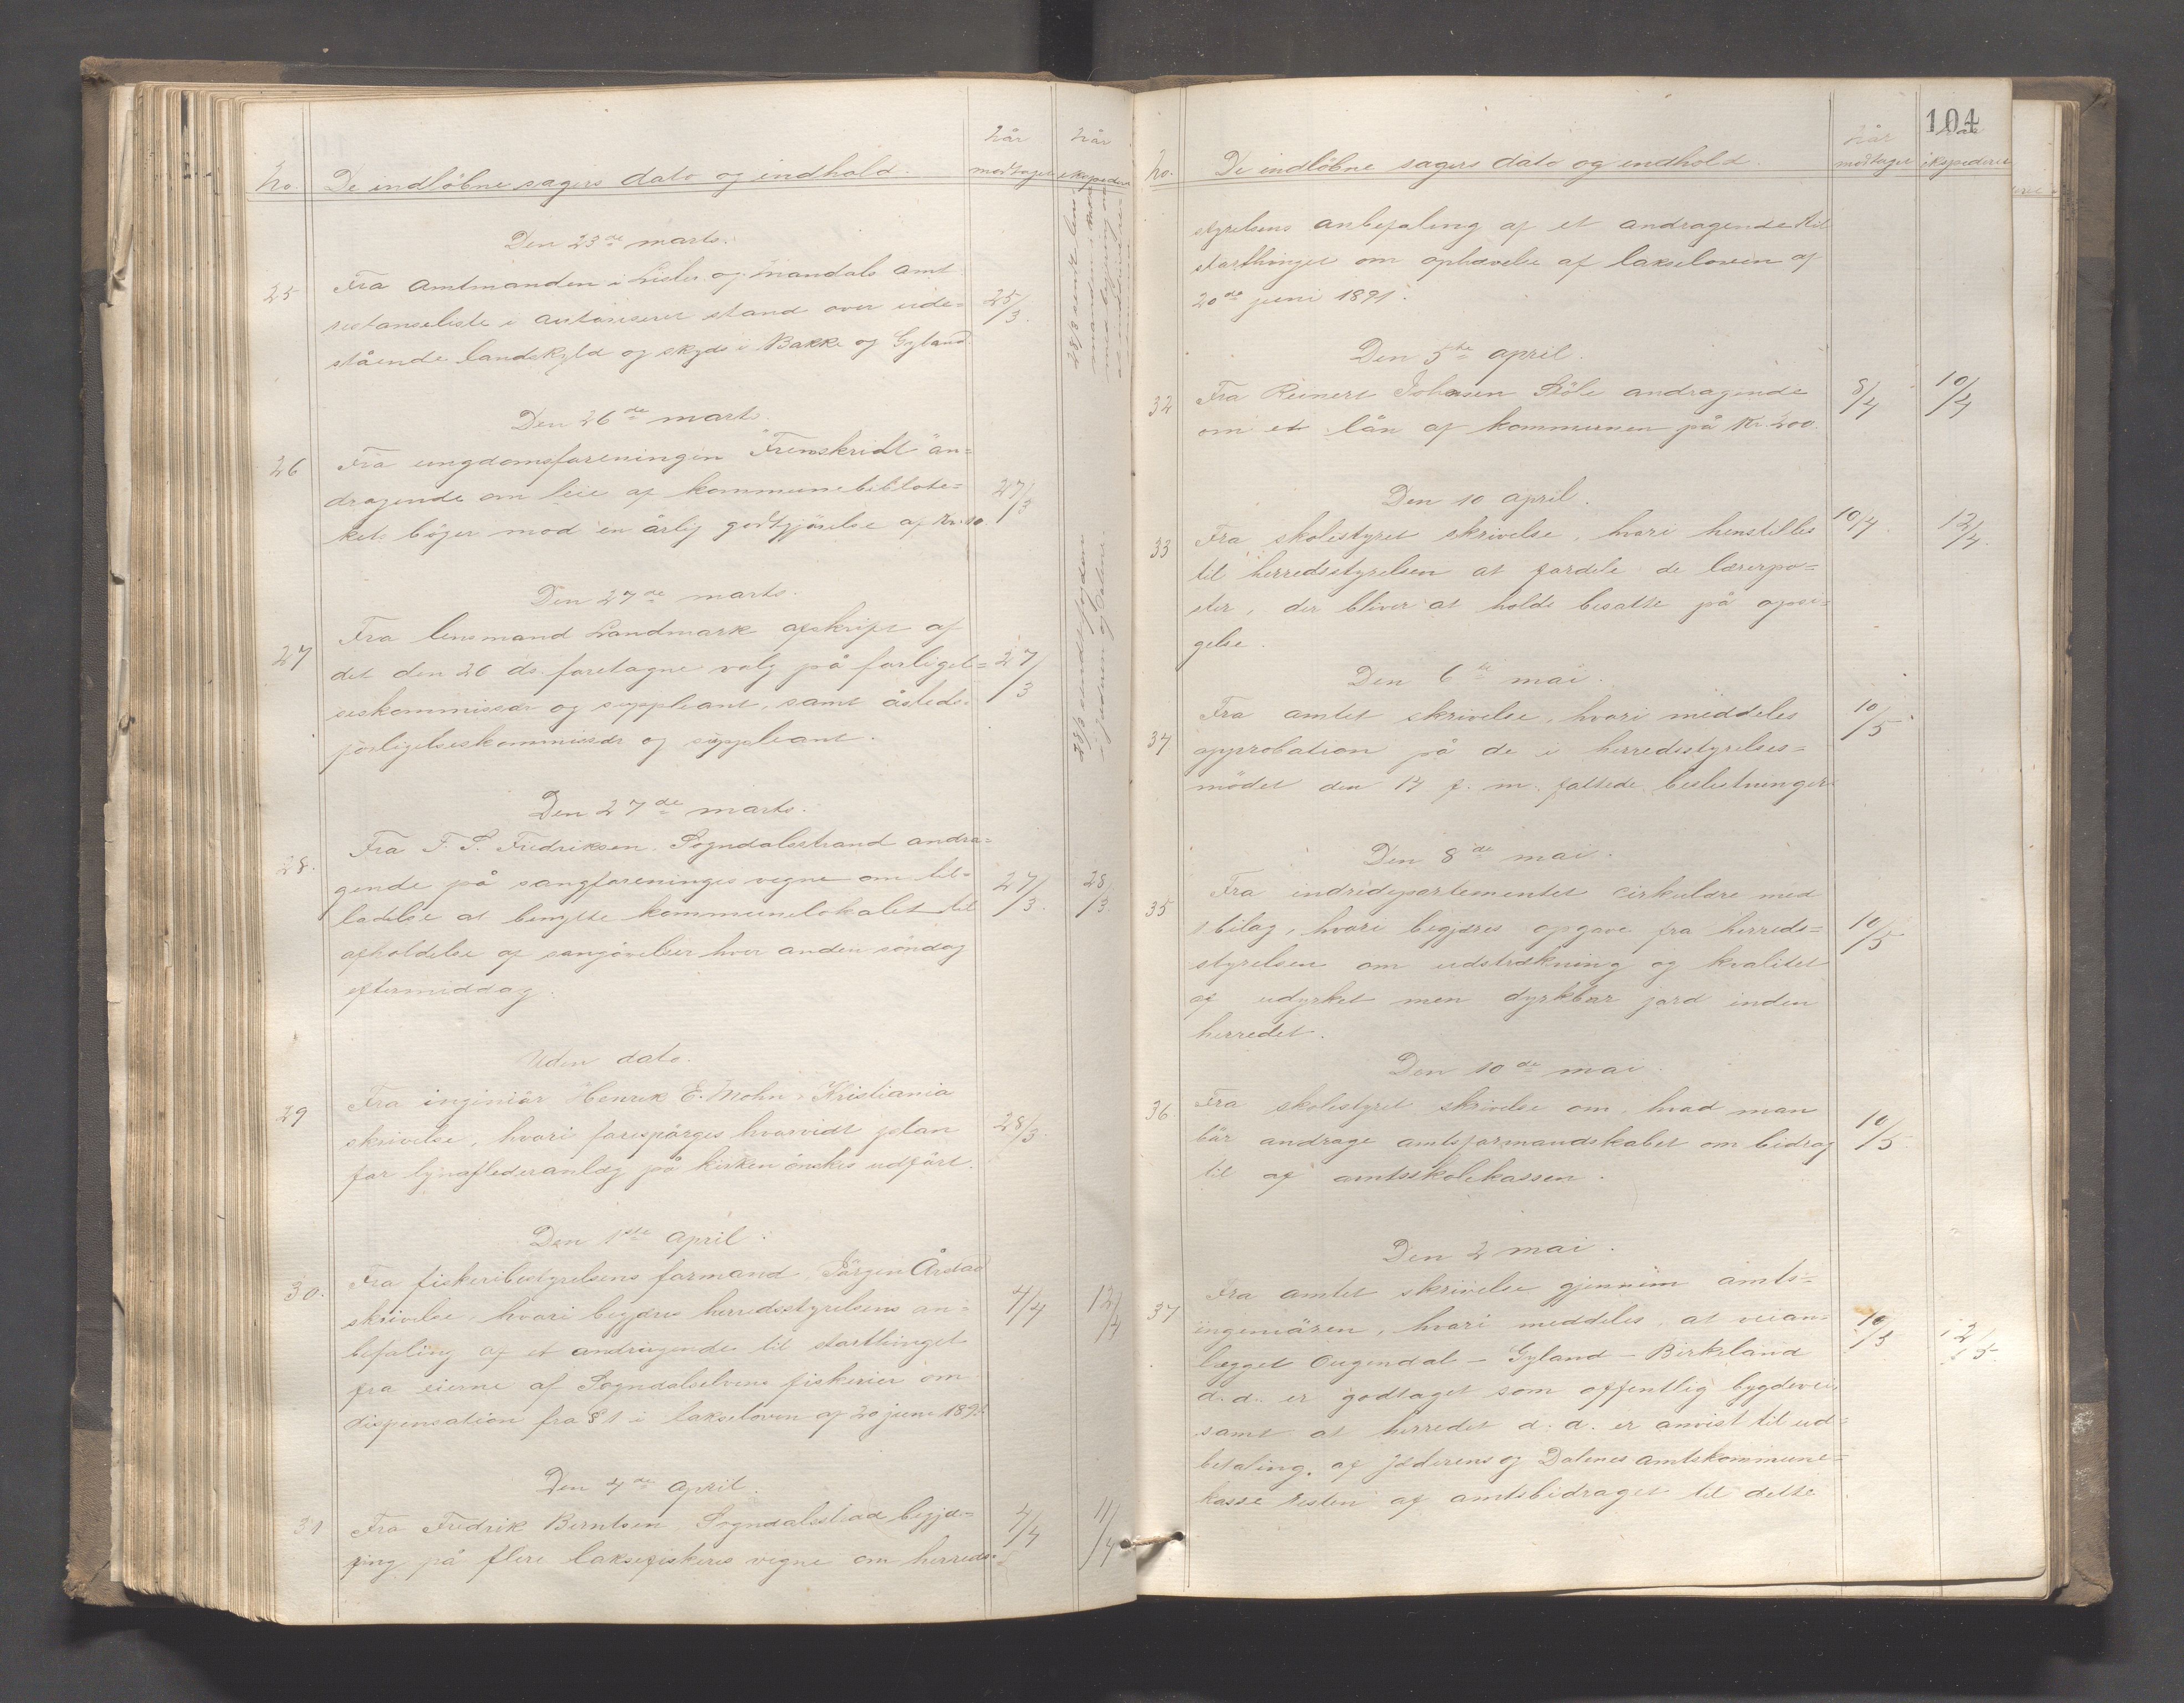 No. De indløbne sagers dato og indhold. når modtaget når ekspederet
Den 23de marts.
25 Fra Amtmanden i Lister og Mandals amt
restanseliste i autoriseret stand over ude=
stående landskyld og skyds i Bakke og Gyland.
25/3.
28/3 sendt len
manden
Den 26de marts.
26 Fra ungdomsforeningen "Fremskridt" an=
dragende om leie af kommunebibliote=
kets bøger mod en årlig godtgjørelse af Kr. 10.
27/3
Den 27de marts.
27 Fra lensmand Landmark afskrift af
det den 26 ds. foretagne valg på forligel=
seskommissær og suppleant, samt åsteds=
forligelseskommissær og suppleant.
27/3
28/3 sendt fogden
i Jæderen og Dalene.
Den 27de marts.
28. Fra F. P. Fredriksen, Sogndalsstrand andra=
gende på sangforeninges vegne om til=
ladelse at benytte kommunelokalet til
afholdelse af sangøvelser hver anden søndag
eftermiddag.
27/3. 28/3
Uden dato.
29 Fra ingeniør Henrik E. Mohn, Kristiania
skrivelse, hvori forespørges hvorvidt plan
for lynaflederanlæg på kirken ønskes udført.
28/3.
Den 1ste april.
30. Fra fiskeribestyrelsens formand Jørgen Årstad
skrivelse, hvori begjæres herredsstyrelsens an=
befaling af et andragende til storthinget
fra eierne af Sogndalselvens fiskerier om
dispensation fra § 1 i lakseloven af 20 juni 1891.
4/4 12/4
Den 4de april.
31 Fra Fredrik Berntsen, Sogndalsstrad begjæ=
ring på flere laksefiskeres vegne om herreds=
4/4 11/4
104
No. De indløbne sagers dato og indhold. når modtaget når ekspederet
styrelsens anbefaling af et andragende til
storthinget om ophævelse af lakseloven af
20de juni 1891.
Den 5te april.
32 Fra Reinert Johnsen Støle andragende
om et lån af kommunen på Kr. 200.
8/4 10/4
Den 10 april.
33 Fra skolestyret skrivelse, hvori henstilles
til herredsstyrelsen at fordele de lærerpo=
ster, der bliver at holde besatte på opsi=
gelse.
10/4. 12/4.
Den 6te mai.
34 Fra amtet skrivelse, hvori meddeles
approbation på de i herredsstyrelses=
mødet den 14 f. m. fattede beslutninger.
10/5
Den 8de mai.
35 Fra indredepartementet cirkulære med
1 bilag, hvori begjæres opgave fra herreds=
styrelsen om udstrækning og kvalitet
af udyrket men dyrkbar jord inden
herredet.
10/5
Den 10de mai.
36. Fra skolestyret skrivelse om, hvad man
bør andrage amtsformandskabet om bidrag
til af amtsskolekassen.
10/5
Den 2 mai.
37 Fra amtet skrivelse gjennem amts=
ingeniøren, hvori meddeles, at veian=
lægget Ougendal – Gyland – Birkeland
d. d. er godtaget som offentlig bygdevei,
samt at herredet d. d. er anvist til ud=
betaling af Jæderens og Dalenes amtskommune=
kasse resten af amtsbidraget til dette
10/5 12/5.